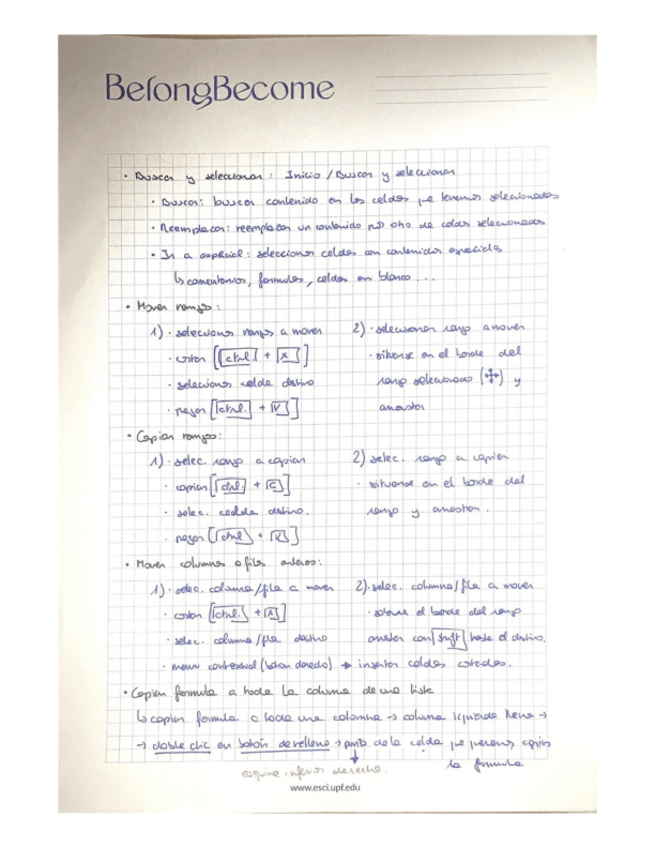 BelongBecome
• Buscar y seleccionar: Inicio / Buscar y seleccionar
• Buscar: buscar contenido en las celdas que tenemos seleccionadas
• Reemplazar: reemplazar un contenido por otro de celdas seleccionadas
• Ir a especial: seleccionar celdas con contenidos especiales
↳ comentarios, formulas, celdas en blanco...
• Mover rangos:
1) · seleccionar rango a mover
· cortar [ctrl + X]
· seleccionar celda destino
· pegar [ctrl. + V]
2) · seleccionar rango a mover
· situarse en el borde del
rango seleccionado (✥) y
arrastrar
• Copiar rangos:
1) · selec. rango a copiar
· copiar [ctrl + C]
· selec. celda destino.
· pegar [ctrl + V]
2) selec. rango a copiar
· situarse en el borde del
rango y arrastrar.
• Mover columnas o filas enteras:
1) · selec. columna/fila a mover
· cortar [ctrl + X]
· selec. columna/fila destino
· menu contextual (botón derecho) → insertar celdas cortadas.
2) · selec. columna/fila a mover
· el borde del rango
arrastrar con shift hasta el destino.
• Copiar formula a toda la columna de una lista
↳ copiar formula a toda una columna → columna izquierda llena →
→ doble clic en botón de relleno → punto de la celda que queremos copiar
↓ la formula
esquina inferior derecha.
www.esci.upf.edu